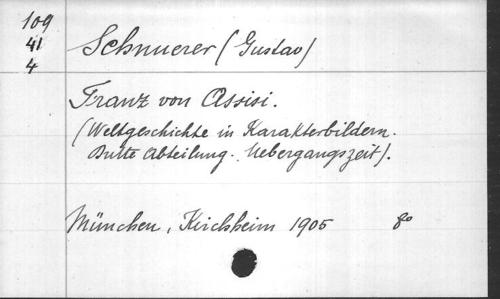 109
41
4
Schnuerer (Gustav)
Franz von Assisi.
(Weltgeschichte in Karakterbildern.
Dritte Abteilung. Uebergangszeit).
München, Kirchheim 1905 8o